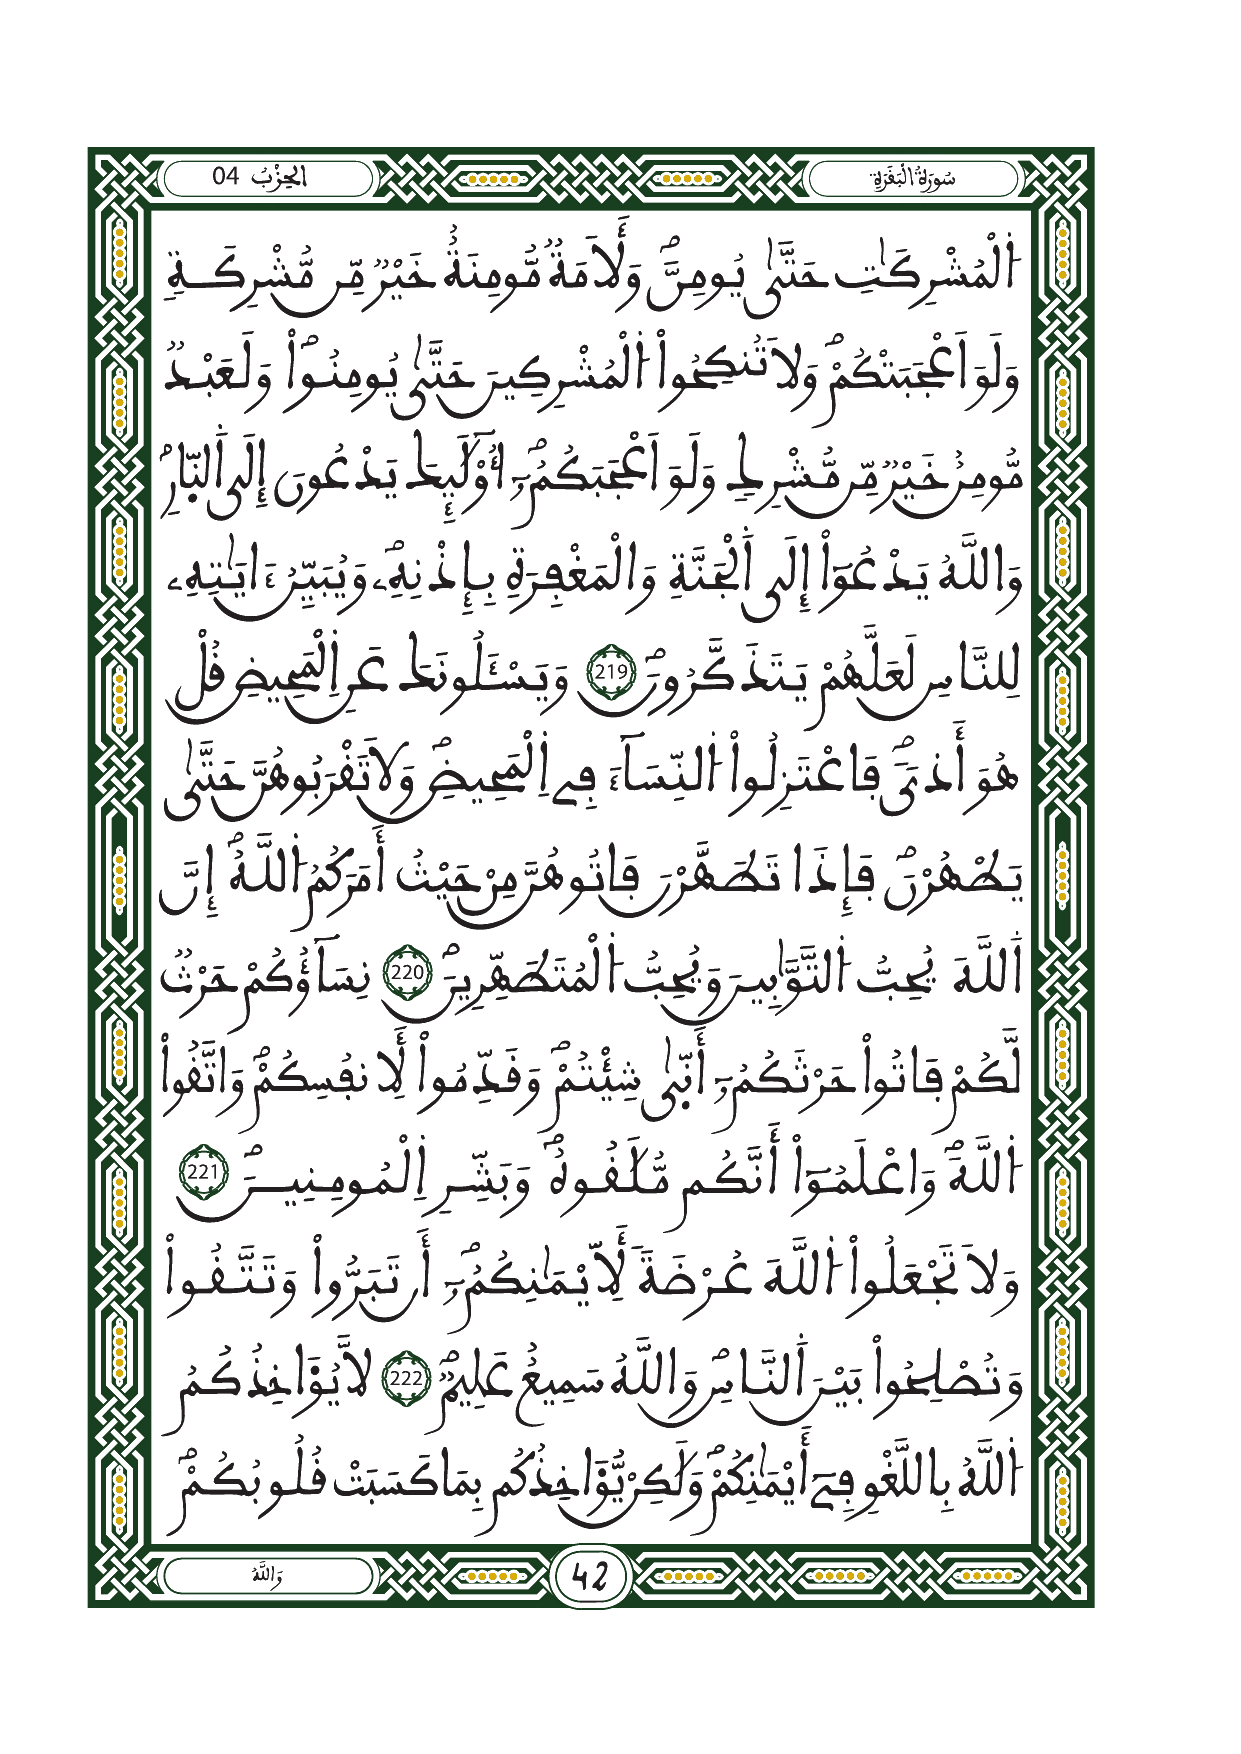 سُورَةُ الْبَقَرَةِ
الحِزْبُ 04
اَ۬لْمُشْرِكَٰتِ حَتَّىٰ يُومِنَّۖ وَلَأَمَةٞ مُّومِنَةٌ خَيْرٞ مِّن مُّشْرِكَةٖ
وَلَوَ اَعْجَبَتْكُمْۖ وَلَا تُنكِحُواْ اُ۬لْمُشْرِكِينَ حَتَّىٰ يُومِنُواْۖ وَلَعَبْدٞ
مُّومِنٌ خَيْرٞ مِّن مُّشْرِكٖ وَلَوَ اَعْجَبَكُمُۥٓۖ أُوْلَٰٓئِكَ يَدْعُونَ إِلَى اَ۬لنّ۪ارِۖ
وَاللَّهُ يَدْعُوٓاْ إِلَى اَ۬لْجَنَّةِ وَالْمَغْفِرَةِ بِإِذْنِهِۦۖ وَيُبَيِّنُ ءَايَٰتِهِۦ
لِلنَّاسِ لَعَلَّهُمْ يَتَذَكَّرُونَۖ 219 وَيَسْـَٔلُونَكَ عَنِ اِ۬لْمَحِيضِ قُلْ
هُوَ أَذىٗۖ فَاعْتَزِلُواْ اُ۬لنِّسَآءَ فِے اِ۬لْمَحِيضِۖ وَلَا تَقْرَبُوهُنَّ حَتَّىٰ
يَطْهُرْنَۖ فَإِذَا تَطَهَّرْنَ فَاتُوهُنَّ مِنْ حَيْثُ أَمَرَكُمُ اُ۬للَّهُۖ إِنَّ
اَ۬للَّهَ يُحِبُّ اُ۬لتَّوَّٰبِينَ وَيُحِبُّ اُ۬لْمُتَطَهِّرِينَۖ 220 نِسَآؤُكُمْ حَرْثٞ
لَّكُمْ فَاتُواْ حَرْثَكُمُۥٓ أَنّ۪يٰ شِئْتُمْۖ وَقَدِّمُواْ لِأَنفُسِكُمْۖ وَاتَّقُواْ
اُ۬للَّهَۖ وَاعْلَمُوٓاْ أَنَّكُم مُّلَٰقُوهُۖ وَبَشِّرِ اِ۬لْمُومِنِينَۖ 221
وَلَا تَجْعَلُواْ اُ۬للَّهَ عُرْضَةٗ لِّأَيْمَٰنِكُمُۥٓۖ أَن تَبَرُّواْ وَتَتَّقُواْ
وَتُصْلِحُواْ بَيْنَ اَ۬لنَّاسِۖ وَاللَّهُ سَمِيعٌ عَلِيمٞۖ 222 لَّا يُؤَاخِذُكُمُ
اُ۬للَّهُ بِاللَّغْوِ فِےٓ أَيْمَٰنِكُمْۖ وَلَٰكِنْ يُّؤَاخِذُكُم بِمَا كَسَبَتْ قُلُوبُكُمْۖ
وَاللَّهُ
42